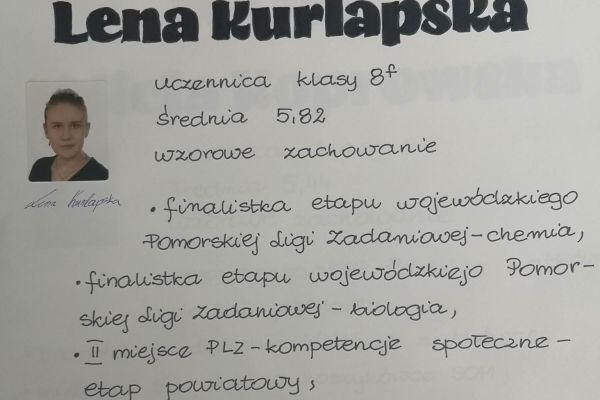 Lena Kurlapska
uczennica klasy 8f
średnia 5,82
wzorowe zachowanie
Lena Kurlapska
• finalistka etapu wojewódzkiego
Pomorskiej Ligi Zadaniowej-chemia,
• finalistka etapu wojewódzkiejo Pomor-
skiej Ligi Zadaniowej - biologia,
• II miejsce PLZ - kompetencje społeczne -
etap powiatowy;